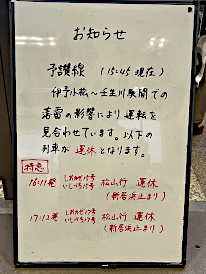 お知らせ
予讃線 (15:45 現在)
伊予小松～壬生川駅間での
落雷の影響により運転を
見合わせています。以下の
列車が 運休 となります。
特急
16:11発 しおかぜ15号 いしづち15号 松山行 運休
(新居浜止まり)
17:12発 しおかぜ17号 いしづち17号 松山行 運休
(新居浜止まり)